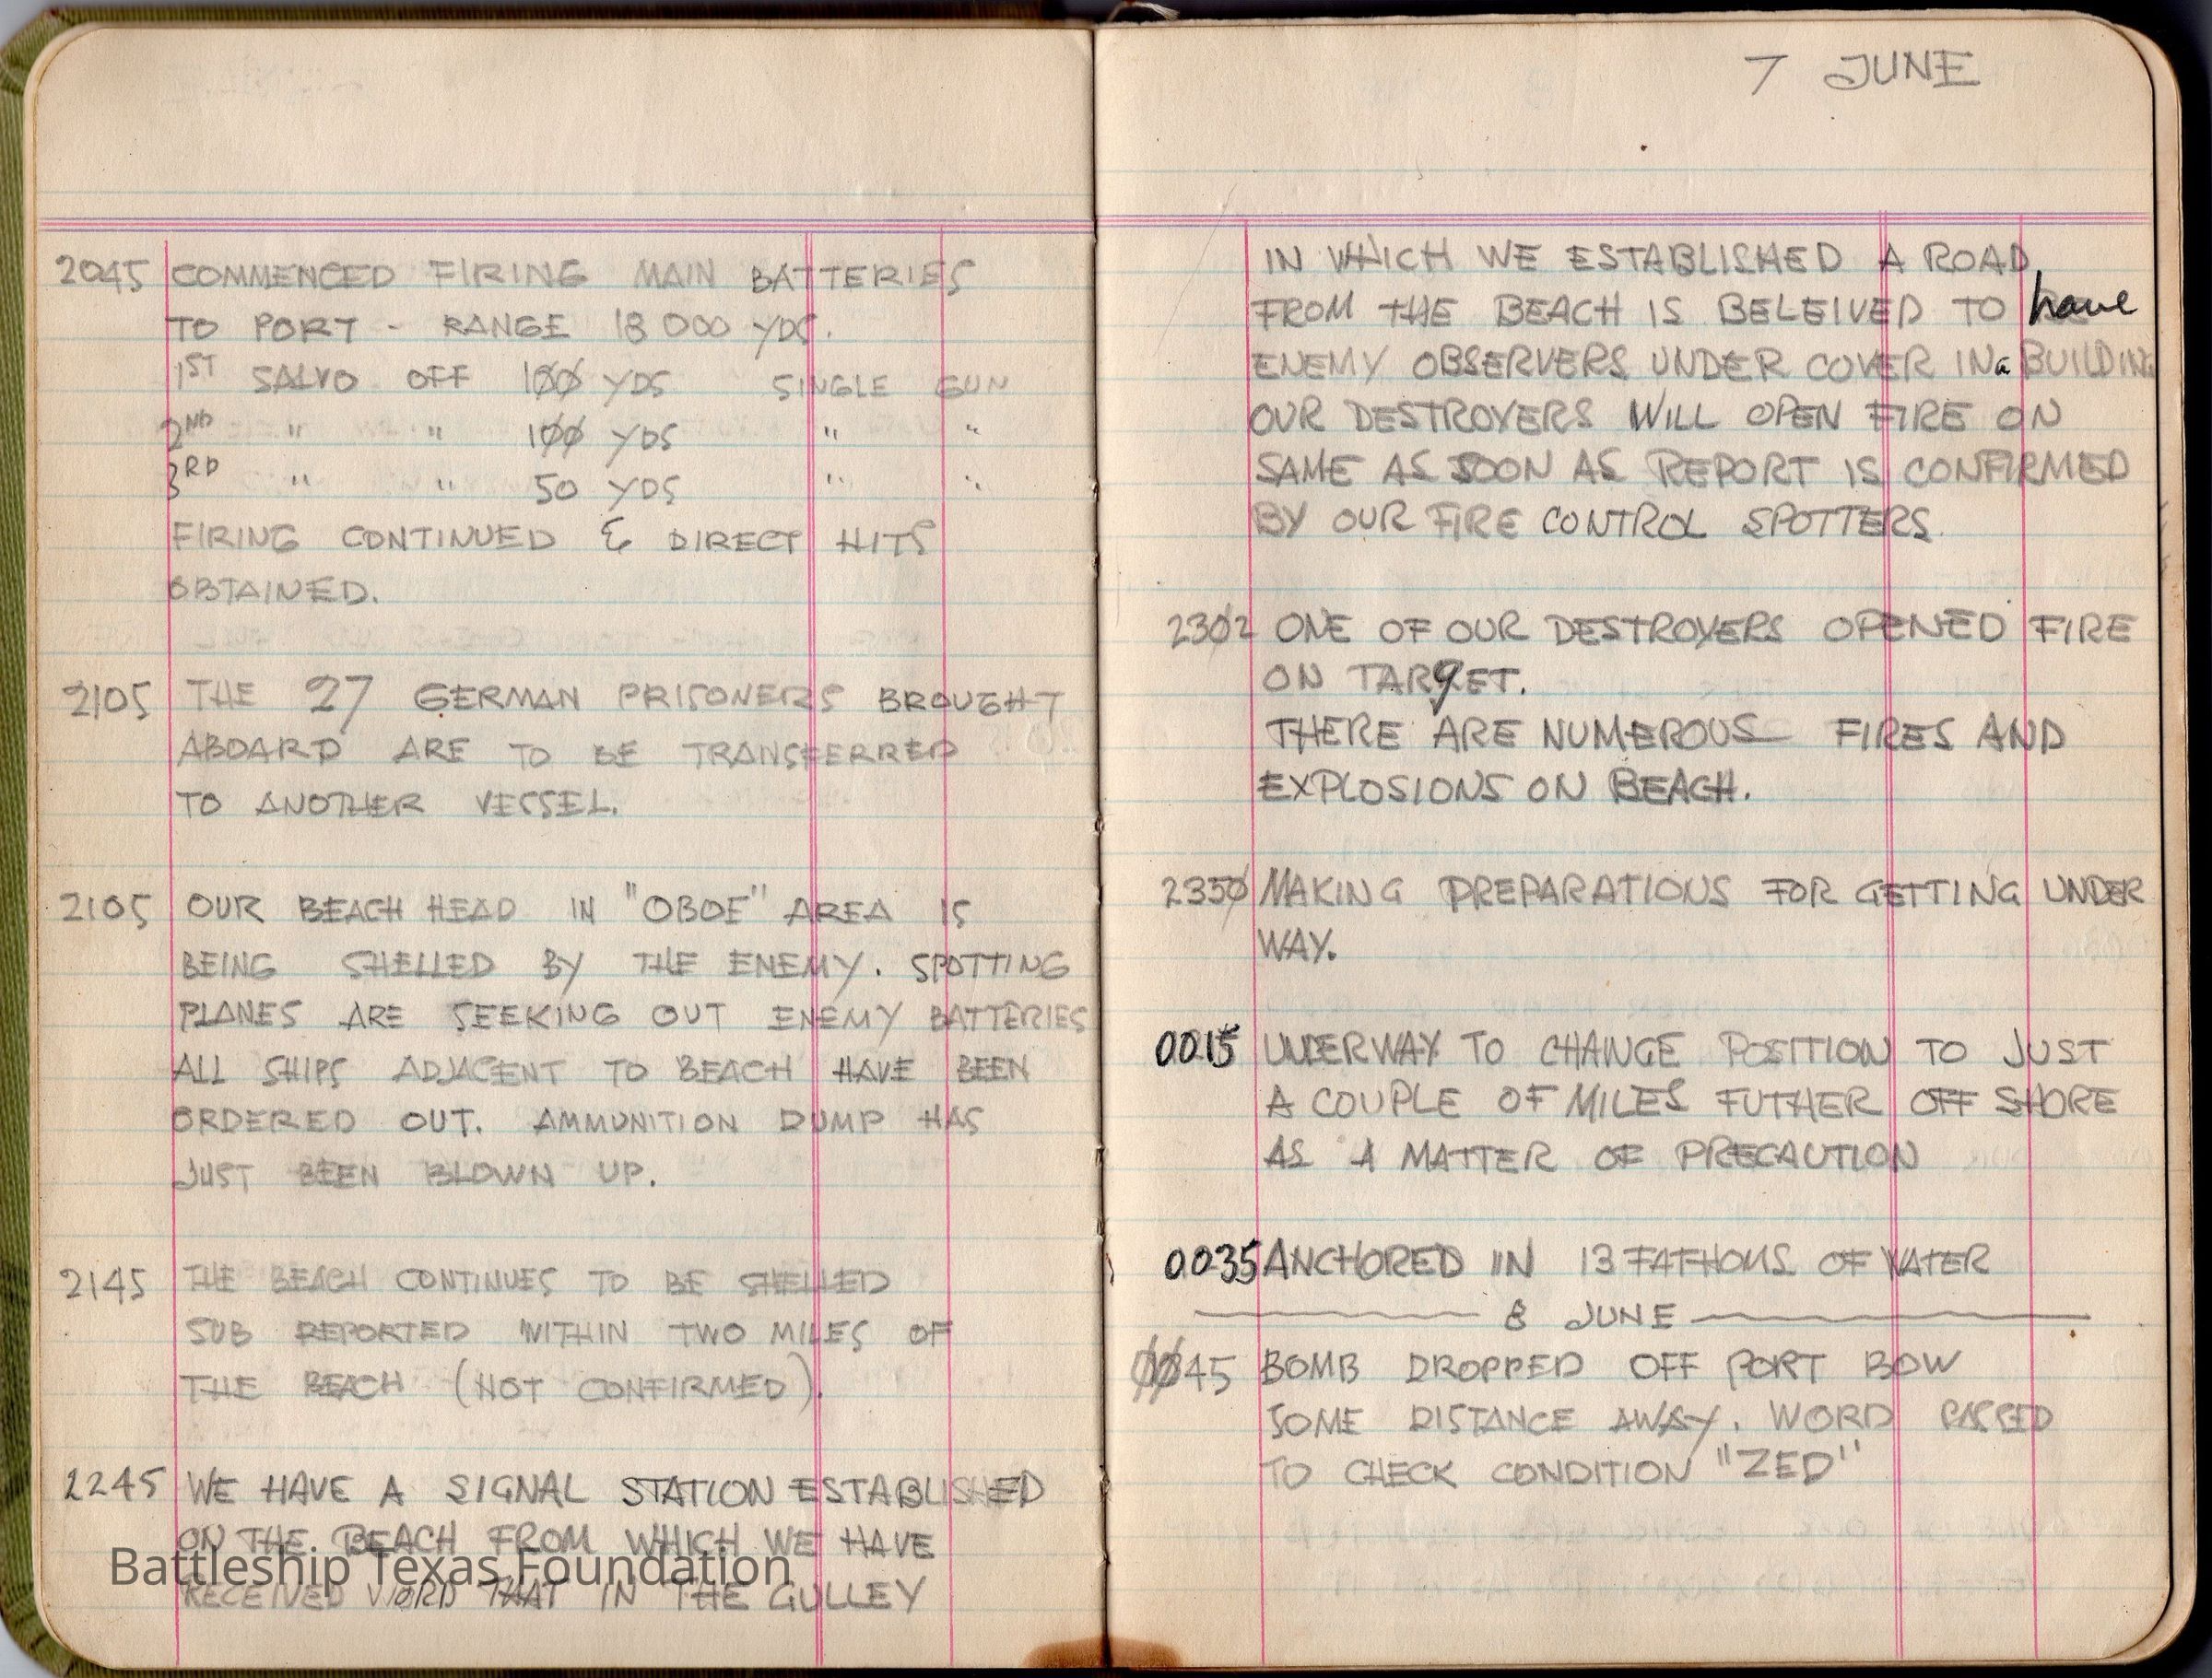 2045 COMMENCED FIRING MAIN BATTERIES
TO PORT - RANGE 18000 YDS.
1ST SALVO OFF 100 YDS SINGLE GUN
2ND " " 100 YDS " "
3RD " " 50 YDS " "
FIRING CONTINUED & DIRECT HITS
OBTAINED.
2105 THE 27 GERMAN PRISONERS BROUGHT
ABOARD ARE TO BE TRANSFERRED
TO ANOTHER VESSEL.
2105 OUR BEACH HEAD IN "OBOE" AREA IS
BEING SHELLED BY THE ENEMY. SPOTTING
PLANES ARE SEEKING OUT ENEMY BATTERIES
ALL SHIPS ADJACENT TO BEACH HAVE BEEN
ORDERED OUT. AMMUNITION DUMP HAS
JUST BEEN BLOWN UP.
2145 THE BEACH CONTINUES TO BE SHELLED
SUB REPORTED WITHIN TWO MILES OF
THE BEACH (NOT CONFIRMED).
2245 WE HAVE A SIGNAL STATION ESTABLISHED
ON THE BEACH FROM WHICH WE HAVE
RECEIVED WORD THAT IN THE GULLEY
Battleship Texas Foundation
7 JUNE
IN WHICH WE ESTABLISHED A ROAD
FROM THE BEACH IS BELEIVED TO have
ENEMY OBSERVERS UNDER COVER IN a BUILDING
OUR DESTROYERS WILL OPEN FIRE ON
SAME AS SOON AS REPORT IS CONFIRMED
BY OUR FIRE CONTROL SPOTTERS.
2302 ONE OF OUR DESTROYERS OPENED FIRE
ON TARgET.
THERE ARE NUMEROUS FIRES AND
EXPLOSIONS ON BEACH.
2350 MAKING PREPARATIONS FOR GETTING UNDER
WAY.
0015 UNDERWAY TO CHANGE POSITION TO JUST
A COUPLE OF MILES FUTHER OFF SHORE
AS A MATTER OF PRECAUTION
0035 ANCHORED IN 13 FATHOMS OF WATER
8 JUNE
0045 BOMB DROPPED OFF PORT BOW
SOME DISTANCE AWAY. WORD PASSED
TO CHECK CONDITION "ZED"